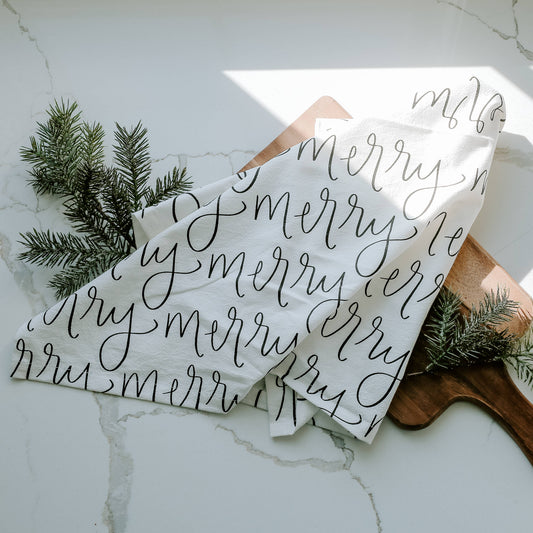 merry
merry merry
merry
merry merry
merry merry
merry
merry
merry